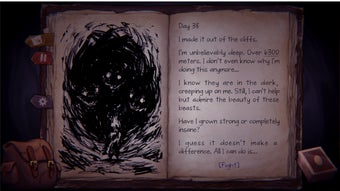 Day 38
I made it out of the cliffs.
I'm unbelievably deep. Over 6300
meters. I don't even know why I'm
doing this anymore...
I know they are in the dark,
creeping up on me. Still, I can't help
but admire the beauty of these
beasts.
Have I grown strong or completely
insane?
I guess it doesn't make a
difference. All I can do is...
[Fight]